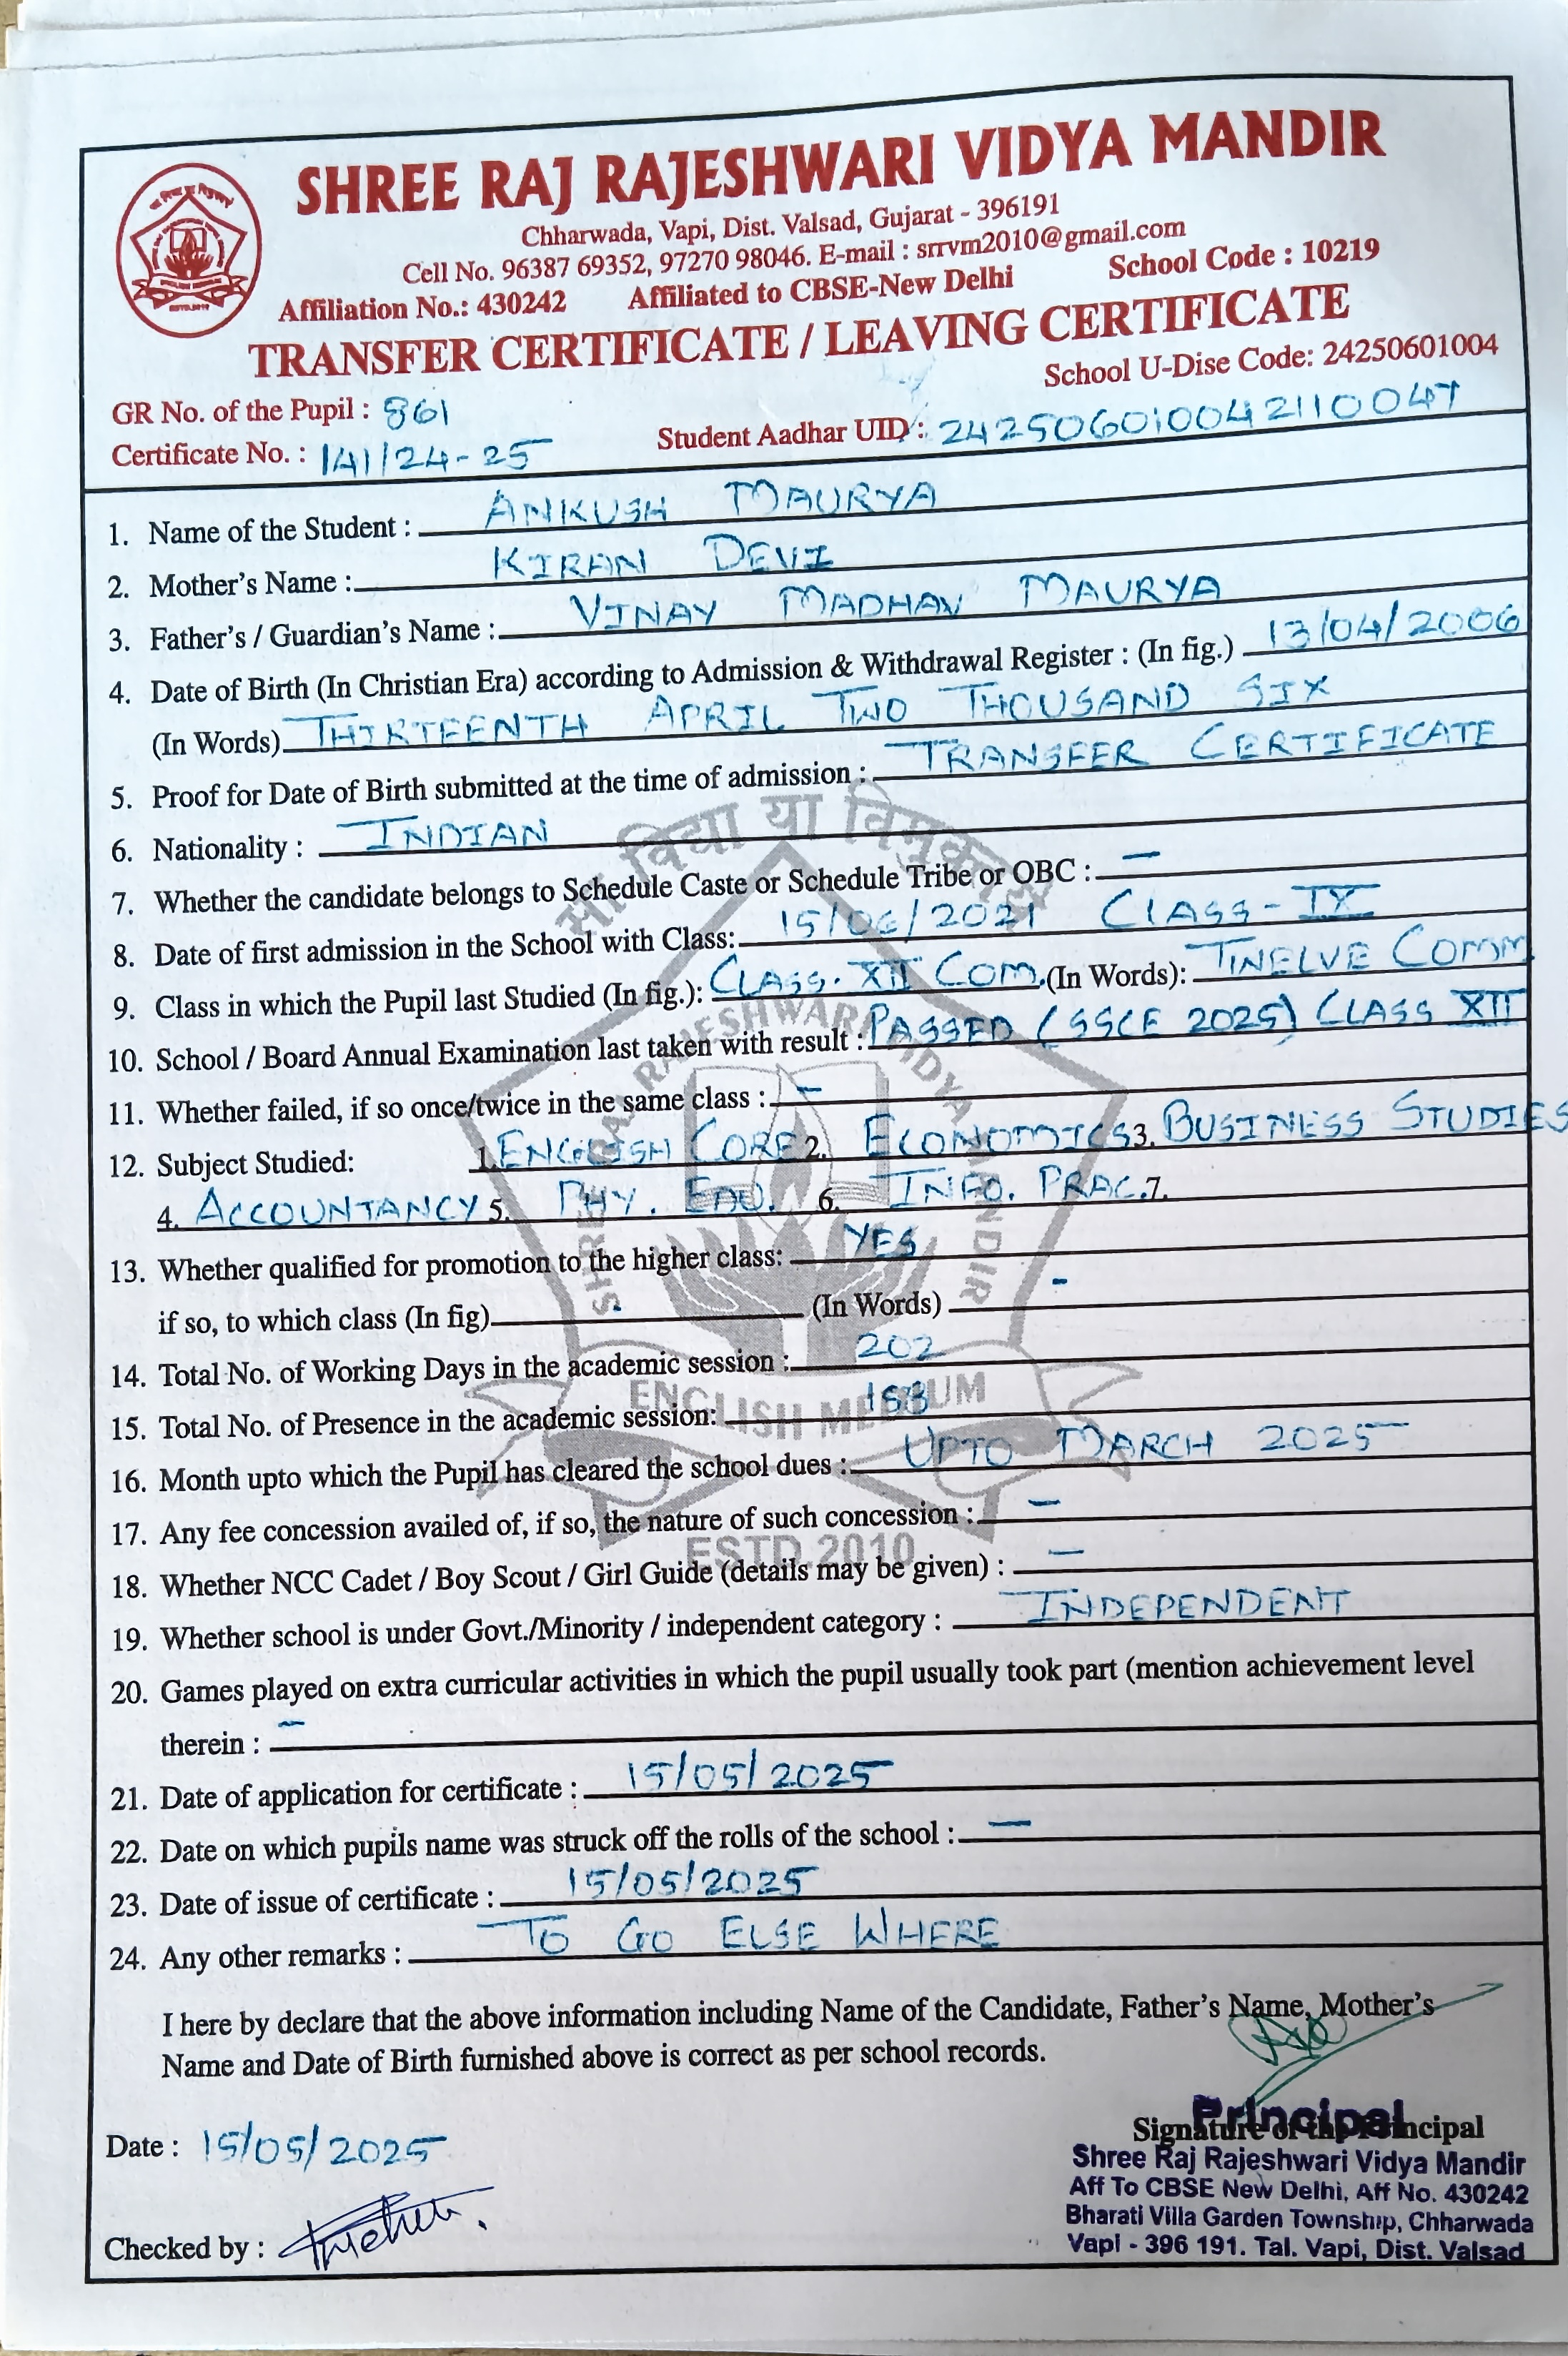 SHREE RAJ RAJESHWARI VIDYA MANDIR
Chharwada, Vapi, Dist. Valsad, Gujarat - 396191
Cell No. 96387 69352, 97270 98046. E-mail : srrvm2010@gmail.com
Affiliation No.: 430242 Affiliated to CBSE-New Delhi School Code : 10219
TRANSFER CERTIFICATE / LEAVING CERTIFICATE
School U-Dise Code: 24250601004
GR No. of the Pupil : 861
Certificate No. : 141/24-25 Student Aadhar UID : 242506010042110047
1. Name of the Student : ANKUSH MAURYA
2. Mother's Name : KIRAN DEVI
3. Father's / Guardian's Name : VINAY MADHAV MAURYA
4. Date of Birth (In Christian Era) according to Admission & Withdrawal Register : (In fig.) 13/04/2006
(In Words) THIRTEENTH APRIL TWO THOUSAND SIX
5. Proof for Date of Birth submitted at the time of admission : TRANSFER CERTIFICATE
6. Nationality : INDIAN
7. Whether the candidate belongs to Schedule Caste or Schedule Tribe or OBC : –
8. Date of first admission in the School with Class: 15/06/2021 CLASS-IX
9. Class in which the Pupil last Studied (In fig.): CLASS. XII COM. (In Words): TWELVE COMM
10. School / Board Annual Examination last taken with result : PASSED (SSCE 2025) CLASS XII
11. Whether failed, if so once/twice in the same class : –
12. Subject Studied: 1. ENGLISH CORE 2. ECONOMICS 3. BUSINESS STUDIES
4. ACCOUNTANCY 5. PHY. EDU. 6. INFO. PRAC. 7.
13. Whether qualified for promotion to the higher class: YES
if so, to which class (In fig) - (In Words) -
14. Total No. of Working Days in the academic session : 202
15. Total No. of Presence in the academic session:
16. Month upto which the Pupil has cleared the school dues : UPTO MARCH 2025
17. Any fee concession availed of, if so, the nature of such concession : –
18. Whether NCC Cadet / Boy Scout / Girl Guide (details may be given) : –
19. Whether school is under Govt./Minority / independent category : INDEPENDENT
20. Games played on extra curricular activities in which the pupil usually took part (mention achievement level
therein : –
21. Date of application for certificate : 15/05/2025
22. Date on which pupils name was struck off the rolls of the school : –
23. Date of issue of certificate : 15/05/2025
24. Any other remarks : TO GO ELSE WHERE
I here by declare that the above information including Name of the Candidate, Father's Name, Mother's
Name and Date of Birth furnished above is correct as per school records.
Principal
Date : 15/05/2025 Signature of the Principal
Shree Raj Rajeshwari Vidya Mandir
Aff To CBSE New Delhi, Aff No. 430242
Bharati Villa Garden Township, Chharwada
Checked by : Vapi - 396 191. Tal. Vapi, Dist. Valsad
सा विद्या या विमुक्तये
SHREE RAJ RAJESHWARI VIDYA MANDIR
ENGLISH MEDIUM
ESTD.2010